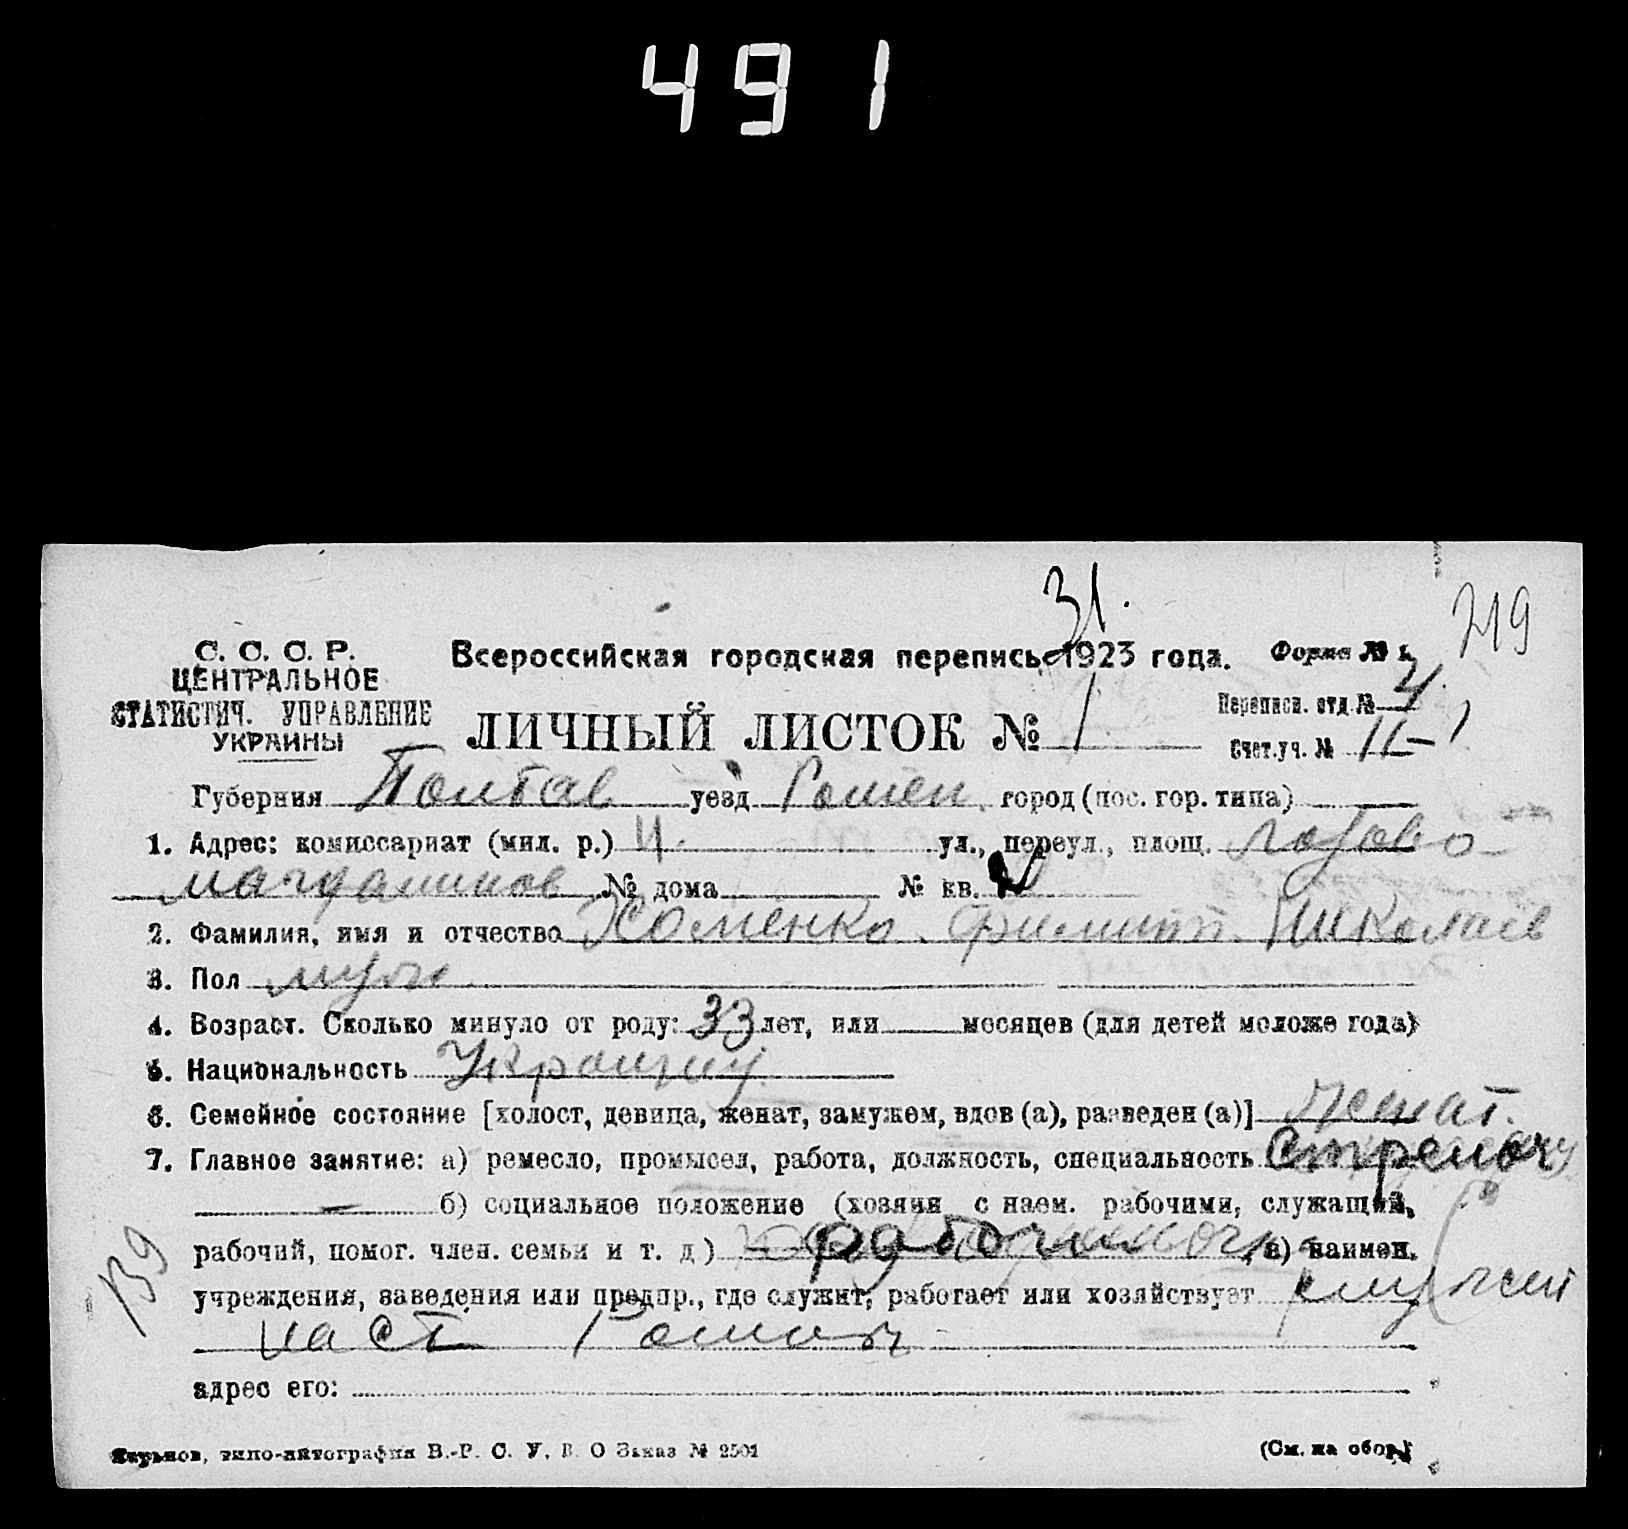 491
31.
719
С. С. С. Р.
ЦЕНТРАЛЬНОЕ
СТАТИСТИЧ. УПРАВЛЕНИЕ
УКРАИНЫ
Всероссийская городская перепись 1923 года.
Форма № 1.
ЛИЧНЫЙ ЛИСТОК № 1
Переписн. отд. № 4
Счет. уч. № 11-1
Губерния Полтав уезд Ромен город (пос. гор. типа)
1. Адрес: комиссариат (мил. р.) 4. ул., переул., площ. Лозово-
магдалинов № дома № кв.
2. Фамилия, имя и отчество Хоменко Филипп Николаев
3. Пол муж
4. Возраст. Сколько минуло от роду: 33 лет, или месяцев (для детей моложе года)
5. Национальность Украинц
6. Семейное состояние [холост, девица, женат, замужем, вдов (а), разведен (а)] женат.
7. Главное занятие: а) ремесло, промысел, работа, должность, специальность
б) социальное положение (хозяин с наем. рабочими, служащий,
рабочий, помог. член. семьи и т. д.) в) наимен.
учреждения, заведения или предпр., где служит, работает или хозяйствует служит
на ст Ромны
адрес его:
139
Харьков, типо-литография В.-Р. С. У. В. О Заказ № 2501
(См. на обор.)